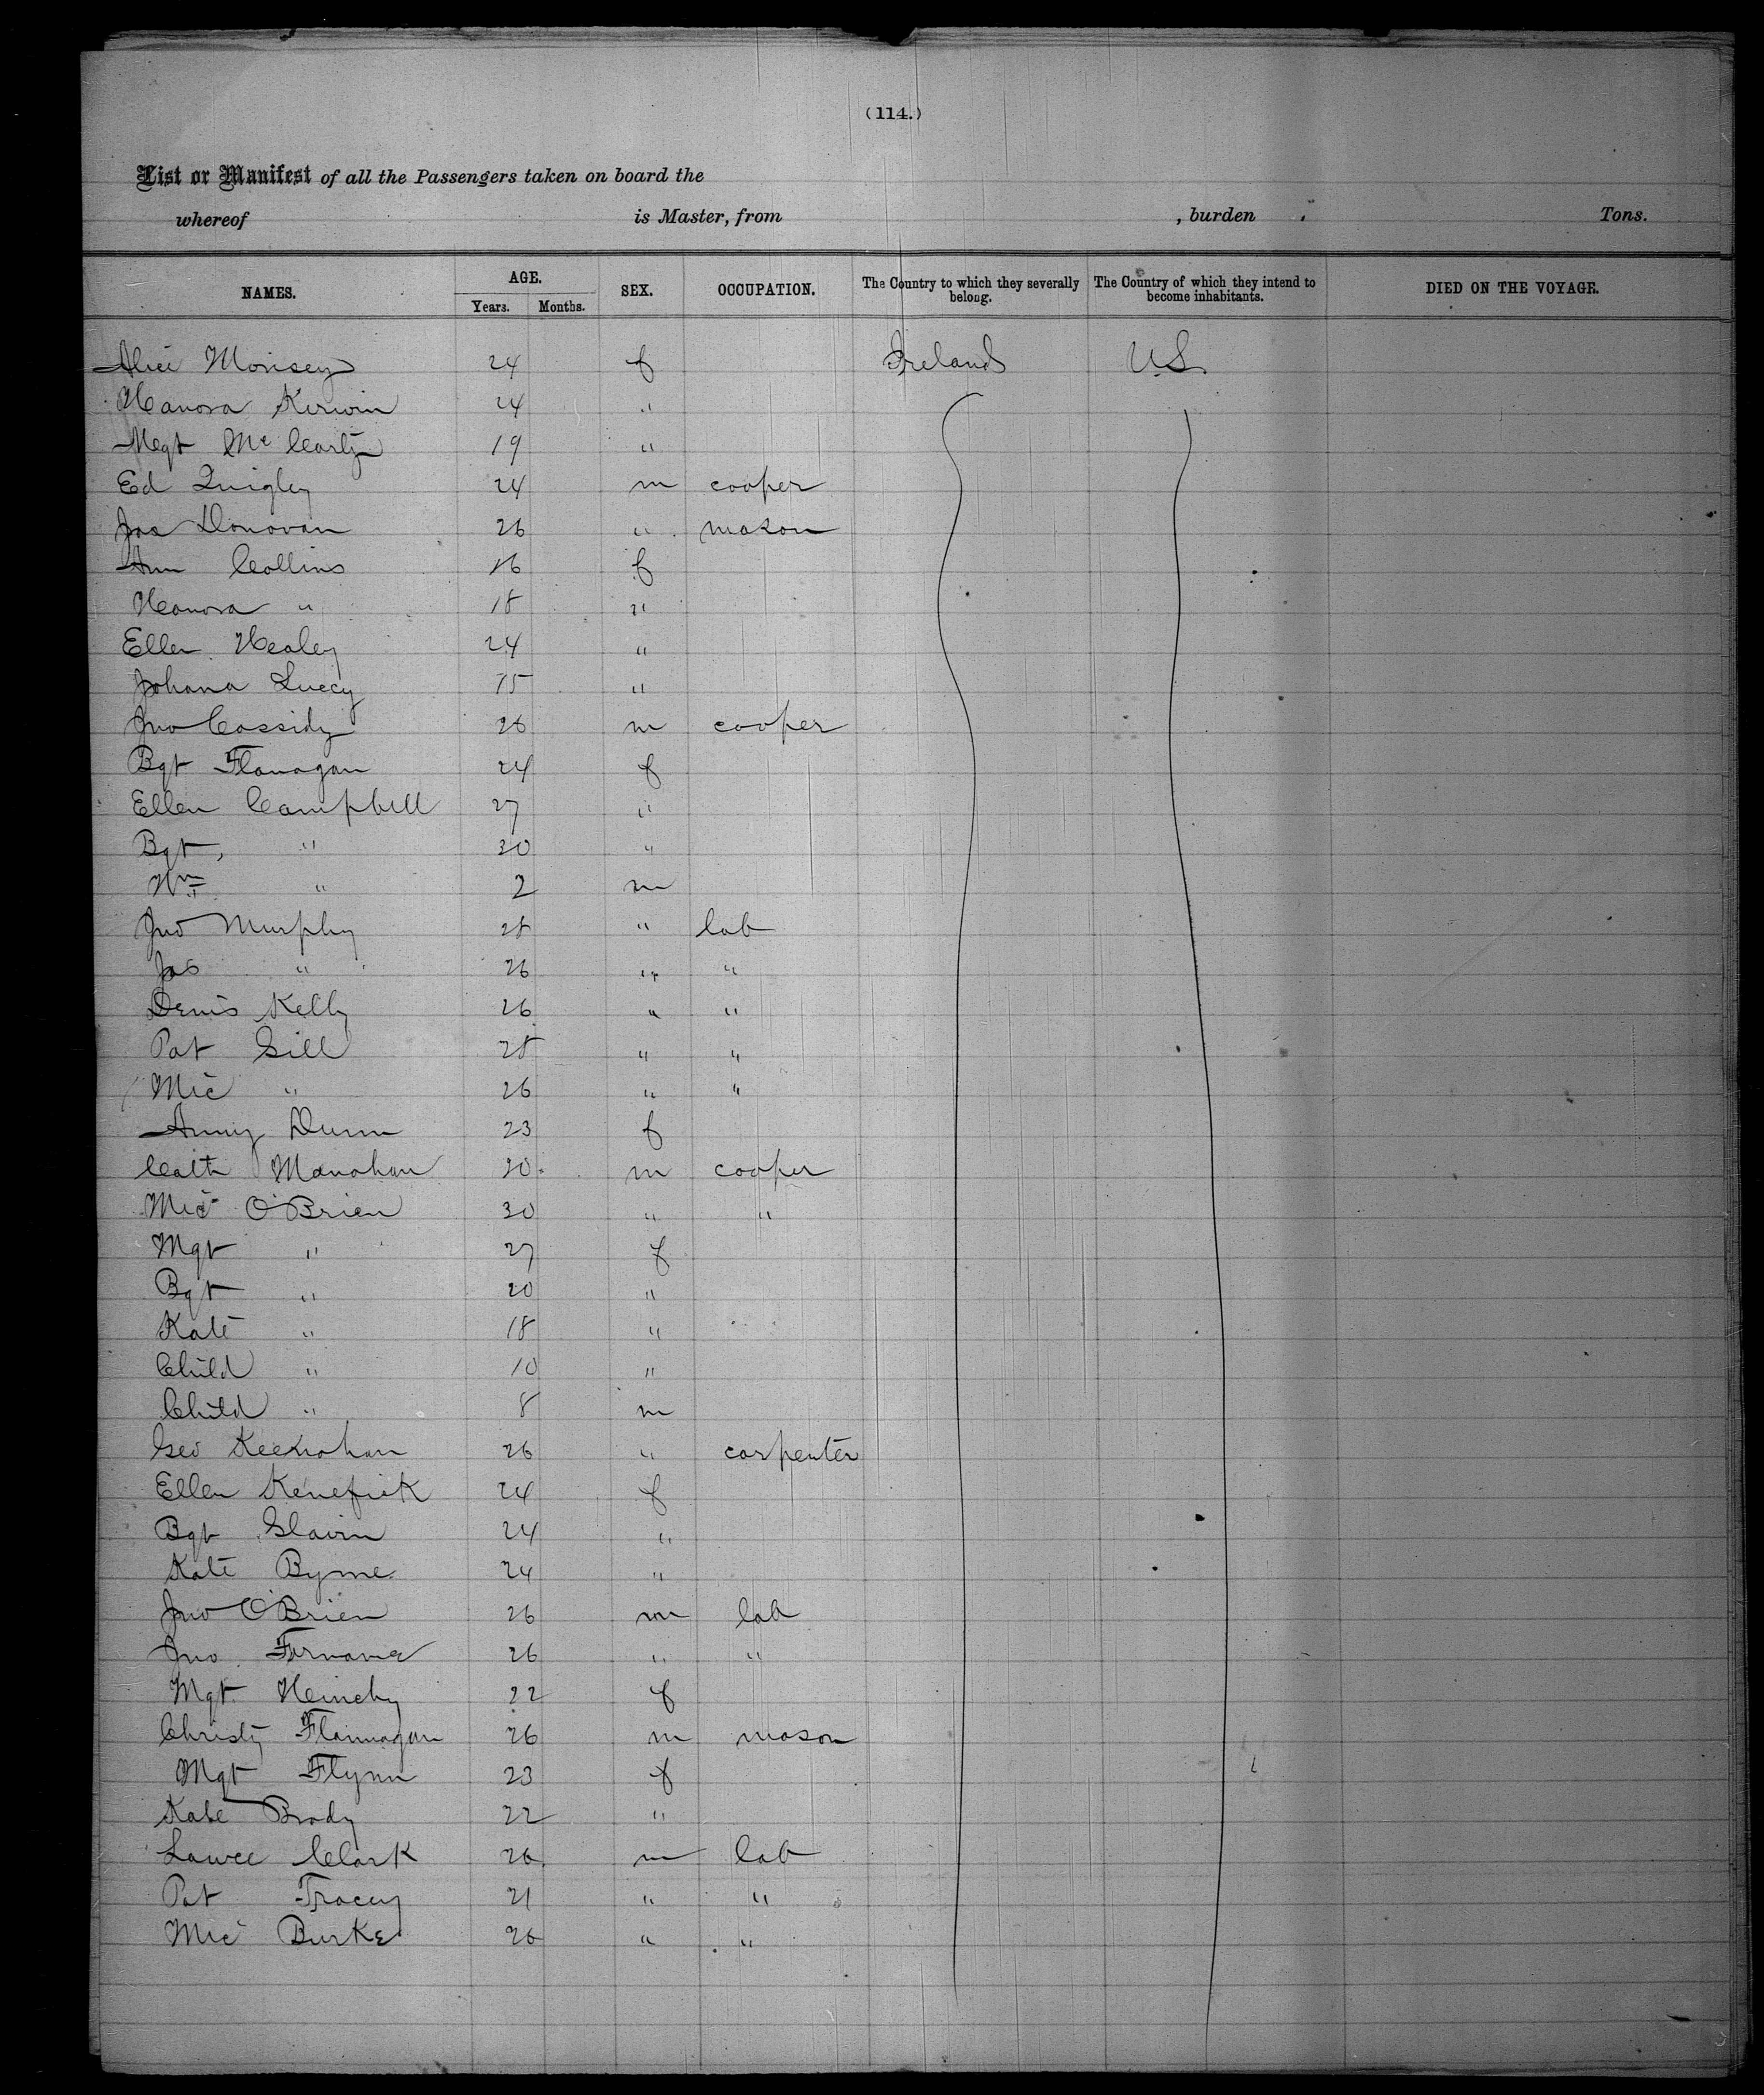 (114.)
List or Manifest of all the Passengers taken on board the
whereof is Master, from , burden Tons.
NAMES. AGE. SEX. OCCUPATION. The Country to which they severally belong. The Country of which they intend to become inhabitants. DIED ON THE VOYAGE.
Years. Months.
Alice Morisey 24 f Ireland U.S.
Hanora Kerwin 24 "
Megt McCarty 19 "
Ed Quigley 24 m cooper
Jas Donovan 26 " mason
Ann Collins 16 f
Hanora " 18 "
Ellen Healey 24 "
Johana Lucey 15 "
Jno Cassidy 26 m cooper
Bgt Flanagan 24 f
Ellen Campbell 27 "
Bgt " 30 "
Wm " 2 m
Jno Murphy 28 " lab
Jas " 26 " "
Denis Kelly 26 " "
Pat Gill 28 " "
Mic " 26 " "
Anny Dunn 23 f
Cath Manahan 20 m cooper
Mic O'Brien 30 " "
Mgt " 27 f
Bgt " 20 "
Kate " 18 "
Child " 10 "
Child " 8 m
Geo 26 " carpenter
Ellen Kenefick 24 f
Bgt Glavin 24 "
Kate Byrne 24 "
Jno O'Brien 26 m lab
Jno 26 " "
Mgt 22 f
Christy Flannagan 26 m mason
Mgt Flynn 23 f
Kate Brody 22 "
Lawce Clark 26 m lab
Pat Tracey 21 " "
Mic Burke 26 " "